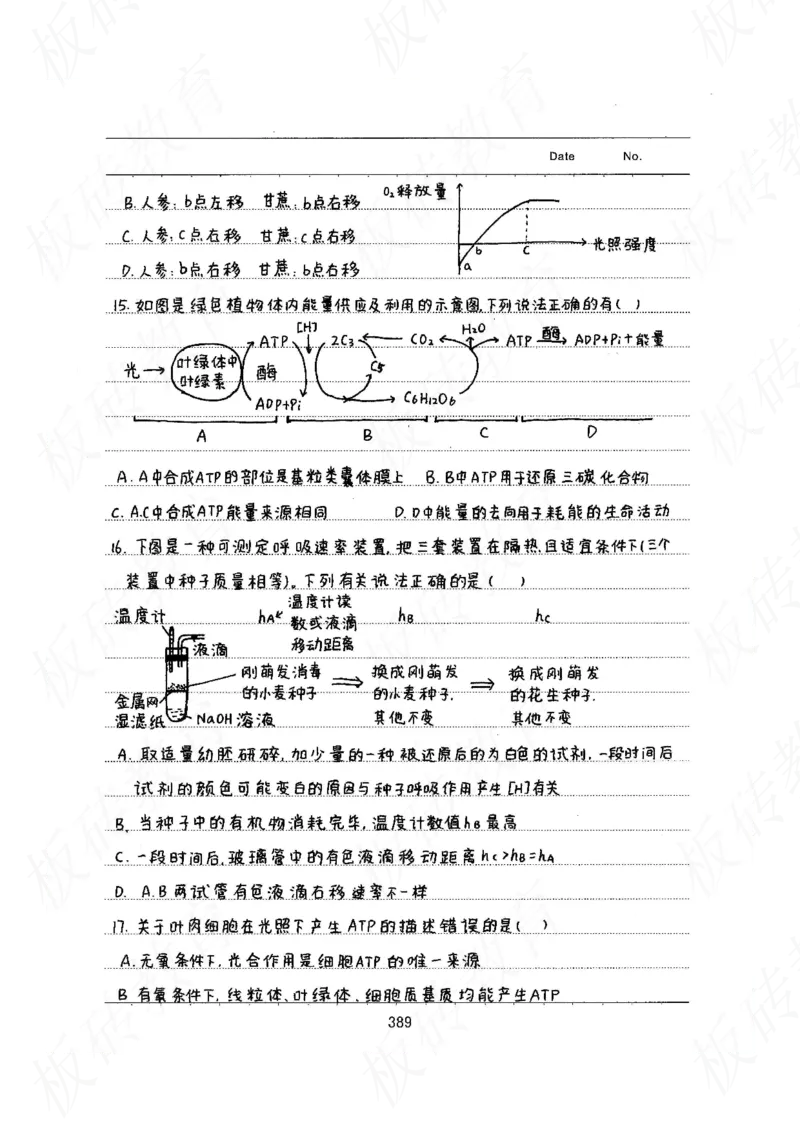 Date No.
B.人参:b点左移 甘蔗:b点右移
O₂释放量
C.人参:c点右移 甘蔗:c点右移
光照强度
a
b
c
D.人参:b点右移 甘蔗:b点右移
15.如图是绿色植物体内能量供应及利用的示意图,下列说法正确的有( )
光→ 叶绿体中叶绿素 ATP 酶 ADP+Pi
[H] 2C₃ C5 CO₂ C6H12O6 H₂O
ATP 酶→ ADP+Pi+能量
A B C D
A.A中合成ATP的部位是基粒类囊体膜上 B.B中ATP用于还原三碳化合物
C.A.C中合成ATP能量来源相同 D.D中能量的去向用于耗能的生命活动
16.下图是一种可测定呼吸速率装置,把三套装置在隔热,且适宜条件下(三个
装置中种子质量相等)。下列有关说法正确的是( )
温度计 hA 温度计读数或液滴移动距离 hB hC
液滴
刚萌发消毒的小麦种子 ⇒ 换成刚萌发的小麦种子.其他不变 ⇒ 换成刚萌发的花生种子.其他不变
金属网
湿滤纸 NaOH溶液
A.取适量幼胚研碎,加少量的一种被还原后的为白色的试剂,一段时间后
试剂的颜色可能变白的原因与种子呼吸作用产生[H]有关
B.当种子中的有机物消耗完毕,温度计数值hB最高
C.一段时间后,玻璃管中的有色液滴移动距离hC>hB=hA
D. A.B两试管有色液滴右移速率不一样
17.关于叶肉细胞在光照下产生ATP的描述错误的是( )
A.无氧条件下,光合作用是细胞ATP的唯一来源
B 有氧条件下,线粒体、叶绿体、细胞质基质均能产生ATP
389
板砖教育